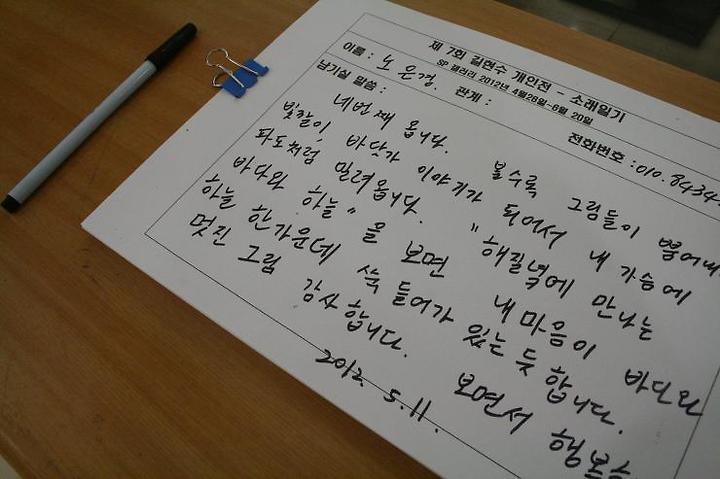 제 7회 길현수 개인전 - 소래일기
SP 갤러리 2012년 4월26일~6월 20일
이름 : 노은경. 관계 : 전화번호 : 010. 8434
남기실 말씀 :
네번째 옵니다. 볼수록 그림들이 뿜어내
빛깔이 바닷가 이야기가 되어서 내 가슴에
파도처럼 밀려옵니다. "해질녘에 만나는
바다와 하늘" 을 보면 내 마음이 바다와
하늘 한가운데 쑥 들어가 있는 듯 합니다.
멋진 그림 감사합니다. 보면서 행복
2012. 5. 11.